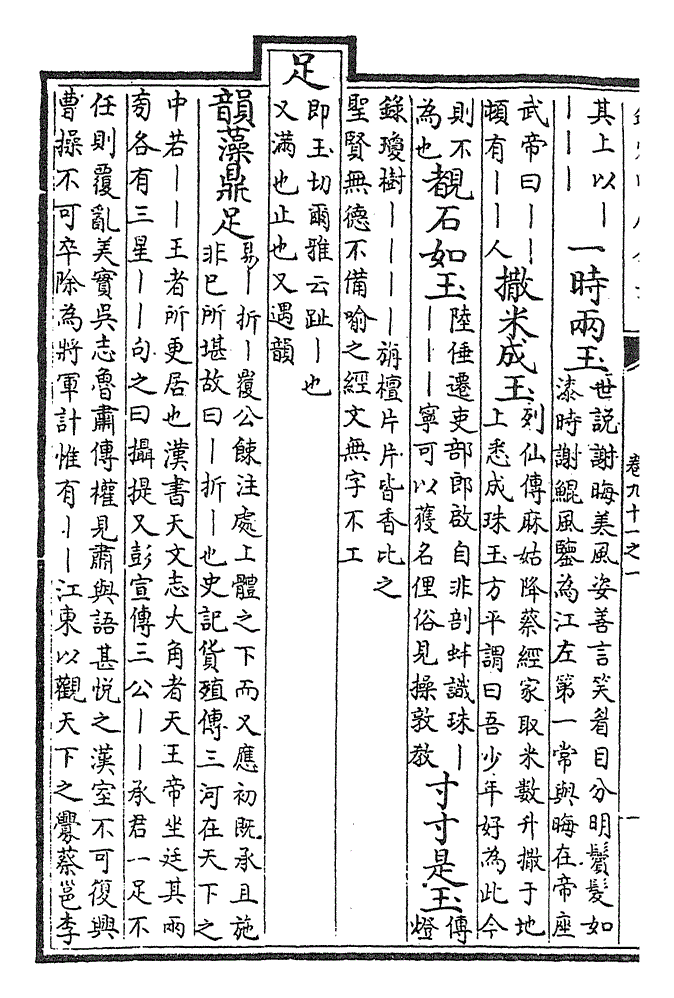 卷九十一之一
一
其上以｜
｜｜｜
一時兩玉
世說謝晦美風姿善言笑眉目分明鬢髮如
漆時謝鯤風鑒為江左第一常與晦在帝座
武帝曰｜｜
頓有｜｜人
撒米成玉
列仙傳麻姑降蔡經家取米數升撒于地
上悉成珠玉方平謂曰吾少年好為此今
則不
為也
覩石如玉
陸倕遷吏部郎啟自非剖蚌識珠｜
｜｜｜寧可以獲名俚俗見操敦教
寸寸是玉
傳
燈
錄瓊樹｜｜｜｜旃檀片片皆香比之
聖賢無德不備喻之經文無字不工
足
即玉切爾雅云趾｜也
又滿也止也又遇韻
韻藻鼎足
易｜折｜覆公餗注處上體之下而又應初既承且施
非已所堪故曰｜折｜也史記貨殖傳三河在天下之
中若｜｜王者所更居也漢書天文志大角者天王帝坐廷其兩
旁各有三星｜｜句之曰攝提又彭宣傳三公｜｜承君一足不
任則覆亂美實吳志魯肅傳權見肅與語甚悅之漢室不可復興
曹操不可卒除為將軍計惟有｜｜江東以觀天下之釁蔡邕李